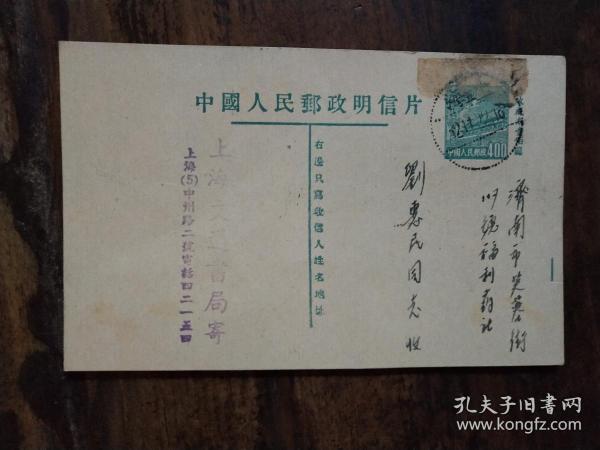 中國人民郵政明信片
中國人民郵政 400
濟南市芙蓉街
福利药社
劉惠民同志收
右邊只寫收信人姓名地址
上海
書局寄
上海(5)中州路二號電話四二一五四
孔夫子旧书网
www.kongfz.com